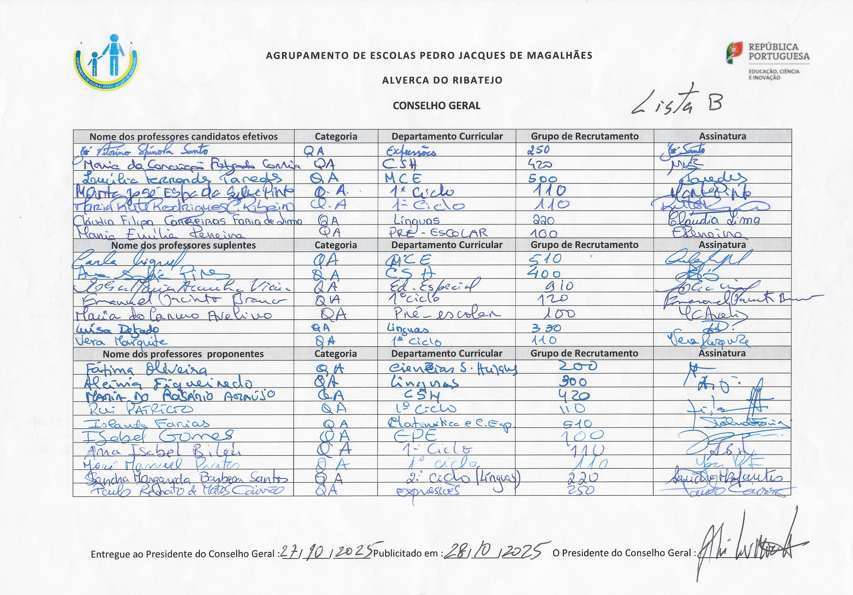 AGRUPAMENTO DE ESCOLAS PEDRO JACQUES DE MAGALHÃES
REPÚBLICA
PORTUGUESA
EDUCAÇÃO, CIÊNCIA
E INOVAÇÃO
ALVERCA DO RIBATEJO
CONSELHO GERAL
Lista B
Nome dos professores candidatos efetivos Categoria Departamento Curricular Grupo de Recrutamento Assinatura
José Vitorino Spínola Santo QA Expressões 250 José Santo
Maria da Conceição Correia QA CSH 420
Lucília Fernandes Paredes QA MCE 500 Paredes
Marta José Espada Silva Pinto Q.A. 1º Ciclo 110 Marta Pinto
Maria Rute Rodrigues C. Ribeiro Q.A 1º Ciclo 110
Cláudia Filipa Correiras Faria de Lima QA Línguas 220 Cláudia Lima
Maria Emília Pereira QA PRÉ-ESCOLAR 100 EPereira
Nome dos professores suplentes Categoria Departamento Curricular Grupo de Recrutamento Assinatura
Carla Miguel QA MCE 510
Ana Sofia Pires QA CSH 400
QA Ed. Especial 910
Emanuel Jacinto Branco QA 1º ciclo 120
Maria do Carmo Avelino QA Pré-escolar 100 MCAvelino
Luísa Delgado QA Línguas 330
Vera Marquite QA 1º Ciclo 110 Vera Marquite
Nome dos professores proponentes Categoria Departamento Curricular Grupo de Recrutamento Assinatura
Fátima Oliveira QA Ciências S. Humanas 200
Alcinia Figueiredo QA Línguas 300
MARIA DO ROSÁRIO ARAÚJO QA CSH 420
RUI PATRÍCIO QA 1º Ciclo 110
Iolanda Farias QA Matemática e C. Exp. 510
Isabel Gomes QA EPE 100
Ana Isabel QA 1º Ciclo 110
Manuel QA 1º ciclo 110
Sandra Margarida Barbosa Santos QA 2º Ciclo (Línguas) 220
Paulo Renato de Matos Cairrão QA expressões 250 Paulo Cairrão
Entregue ao Presidente do Conselho Geral : 27/10/2025 Publicitado em : 28/10/2025 O Presidente do Conselho Geral :